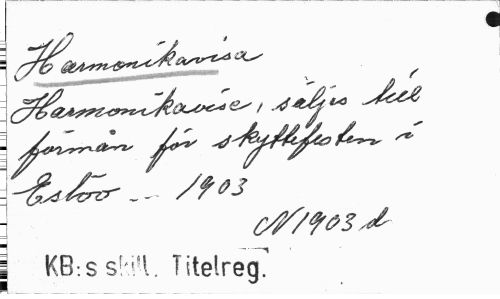 Harmonikavisa
Harmonikavise, säljes till
förmån för skyttefesten i
Eslöv -- 1903
N 1903 d
KB:s skill. Titelreg.